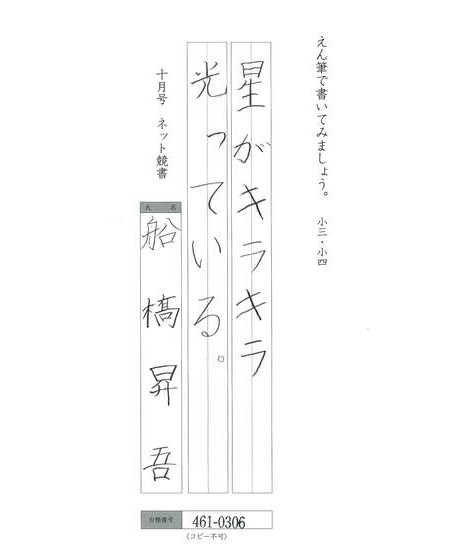 えん筆で書いてみましょう。　小三・小四
星がキラキラ
光っている。
十月号　ネット競書
氏　名
船橋昇吾
台帳番号
461-0306
(コピー不可)